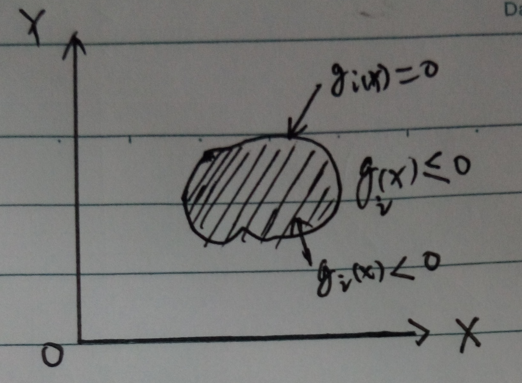 Da
Y
gᵢ(x)=0
gᵢ(x)≤0
gᵢ(x)<0
O
X